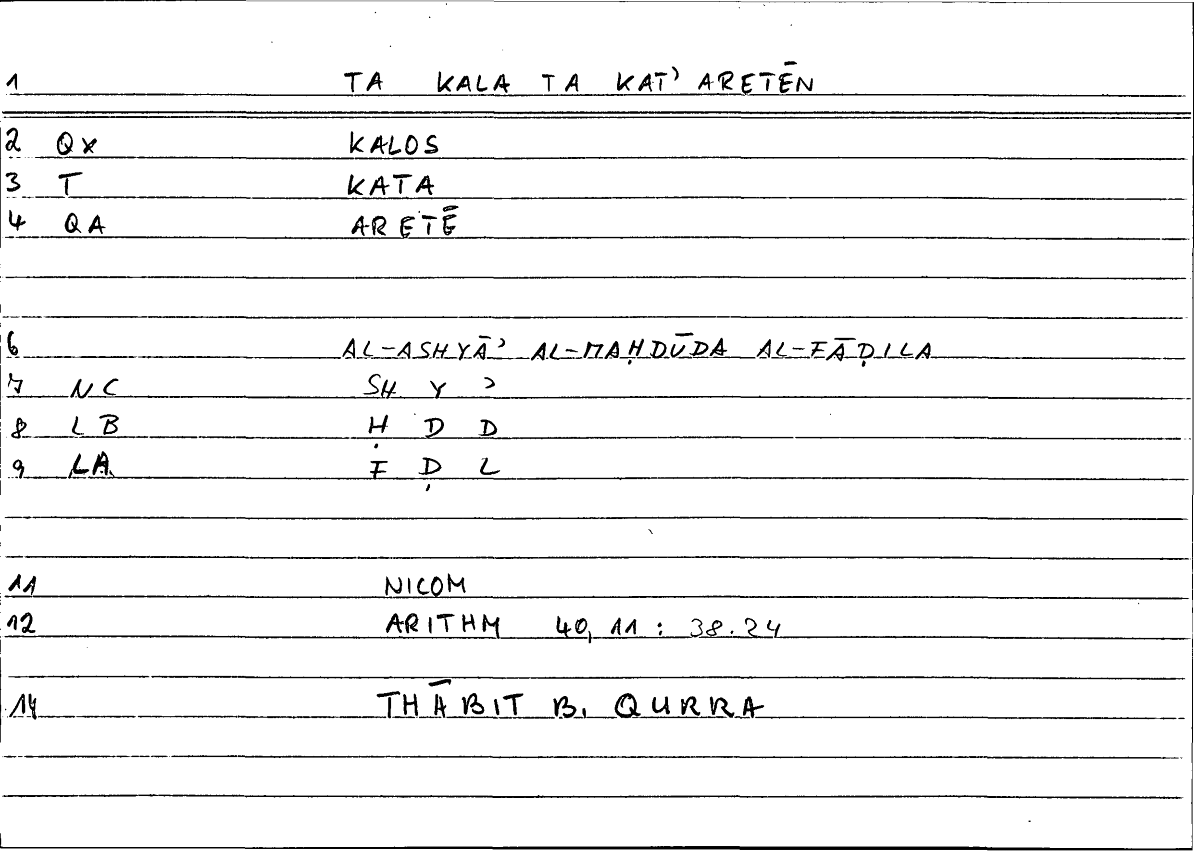 1 TA KALA TA KAT' ARETĒN
2 Qx KALOS
3 T KATA
4 QA ARETĒ
6 AL-ASHYĀʾ AL-MAḤDŪDA AL-FĀḌILA
7 NC SH Y ʾ
8 LB Ḥ D D
9 LA F Ḍ L
11 NICOM
12 ARITHM 40, 11 : 38.24
14 THĀBIT B. QURRA